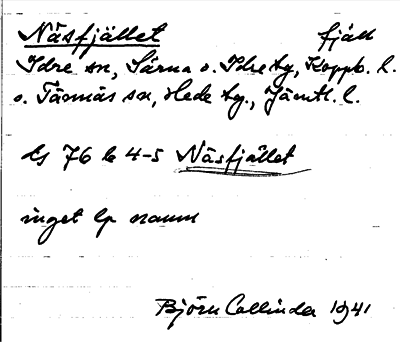 Näsfjället fjäll
Idre sn, Särna o. Idre tg, Kopp. l.
o. Tännäs sn, Hede tg., Jämtl. l.
ds 76 b 4-5 Näsfjället
inget lp namn
Björn Collinder 1941